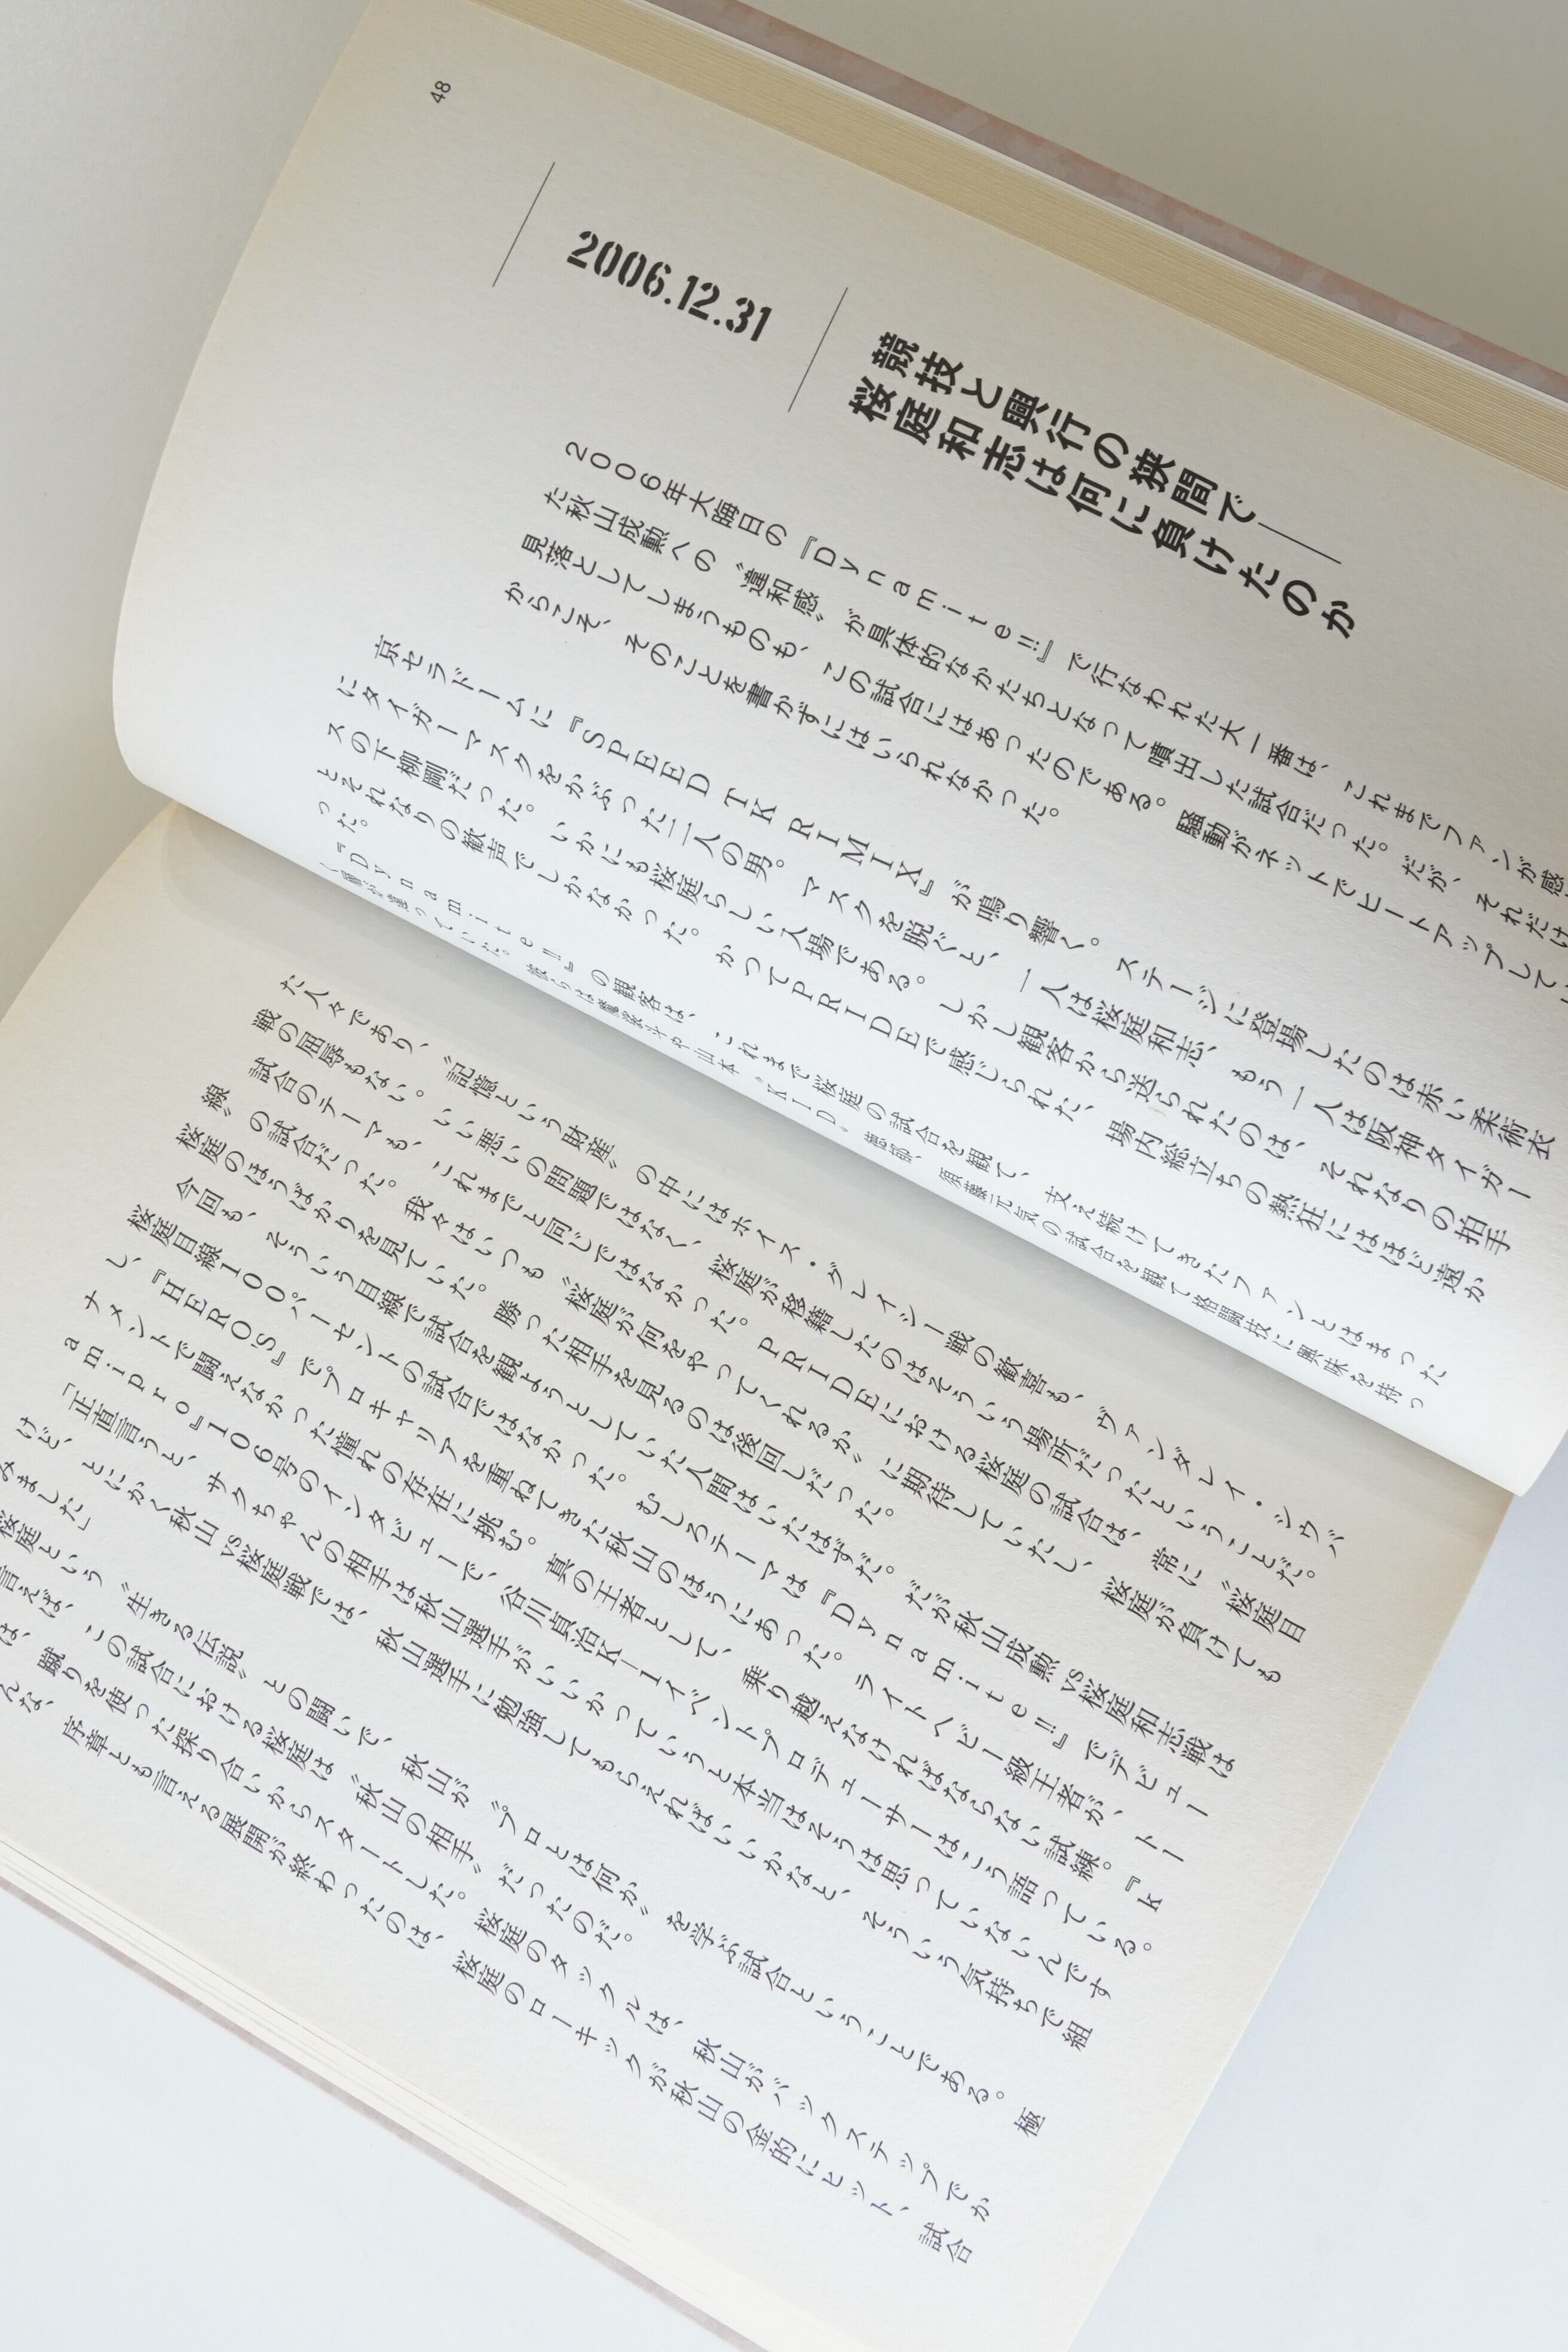 48
2006.12.31
競技と興行の狭間で――
桜庭和志は何に負けたのか
2006年大晦日の『Dynamite!!』で行なわれた大一番は、これまでファンが感
た秋山成勲への〝違和感〟が具体的なかたちとなって噴出した試合だった。だが、それだけ
見落としてしまうものも、この試合にはあったのである。騒動がネットでヒートアップしてい
からこそ、そのことを書かずにはいられなかった。
京セラドームに『SPEED TK RIMIX』が鳴り響く。ステージに登場したのは赤い柔術衣
にタイガーマスクをかぶった二人の男。マスクを脱ぐと、一人は桜庭和志、もう一人は阪神タイガー
スの下柳剛だった。いかにも桜庭らしい入場である。しかし観客から送られたのは、それなりの拍手
とそれなりの歓声でしかなかった。かつてPRIDEで感じられた、場内総立ちの熱狂にはほど遠か
った。
『Dynamite!!』の観客は、これまで桜庭の試合を観て、支え続けてきたファンとはまった
く層が違っていた。彼らは魔裟斗や山本〝KID〟徳郁、須藤元気の試合を観て格闘技に興味を持っ
た人々であり、〝記憶という財産〟の中にはホイス・グレイシー戦の歓喜も、ヴァンダレイ・シウバ
戦の屈辱もない。いい悪いの問題ではなく、桜庭が移籍したのはそういう場所だったということだ。
試合のテーマも、これまでと同じではなかった。PRIDEにおける桜庭の試合は、常に〝桜庭目
線〟の試合だった。我々はいつも〝桜庭が何をやってくれるか〟に期待していたし、桜庭が負けても
桜庭のほうばかりを見ていた。勝った相手を見るのは後回しだった。
今回も、そういう目線で試合を観ようとしていた人間はいたはずだ。だが秋山成勲vs桜庭和志戦は
桜庭目線100パーセントの試合ではなかった。むしろテーマは『Dynamite!!』でデビュー
し、『HERO'S』でプロキャリアを重ねてきた秋山のほうにあった。ライトヘビー級王者が、トー
ナメントで闘えなかった憧れの存在に挑む。真の王者として、乗り越えなければならない試練。『k
amipro』106号のインタビューで、谷川貞治K-1イベントプロデューサーはこう語っている。
「正直言うと、サクちゃんの相手は秋山選手がいいかっていうと本当はそうは思っていないんです
けど、とにかく秋山vs桜庭戦では、秋山選手に勉強してもらえればいいかなと、そういう気持ちで組
みました」
桜庭という〝生きる伝説〟との闘いで、秋山が〝プロとは何か〟を学ぶ試合ということである。極
言えば、この試合における桜庭は〝秋山の相手〟だったのだ。
は、蹴りを使った探り合いからスタートした。桜庭のタックルは、秋山がバックステップでか
んな、序章とも言える展開が終わったのは、桜庭のローキックが秋山の金的にヒット、試合